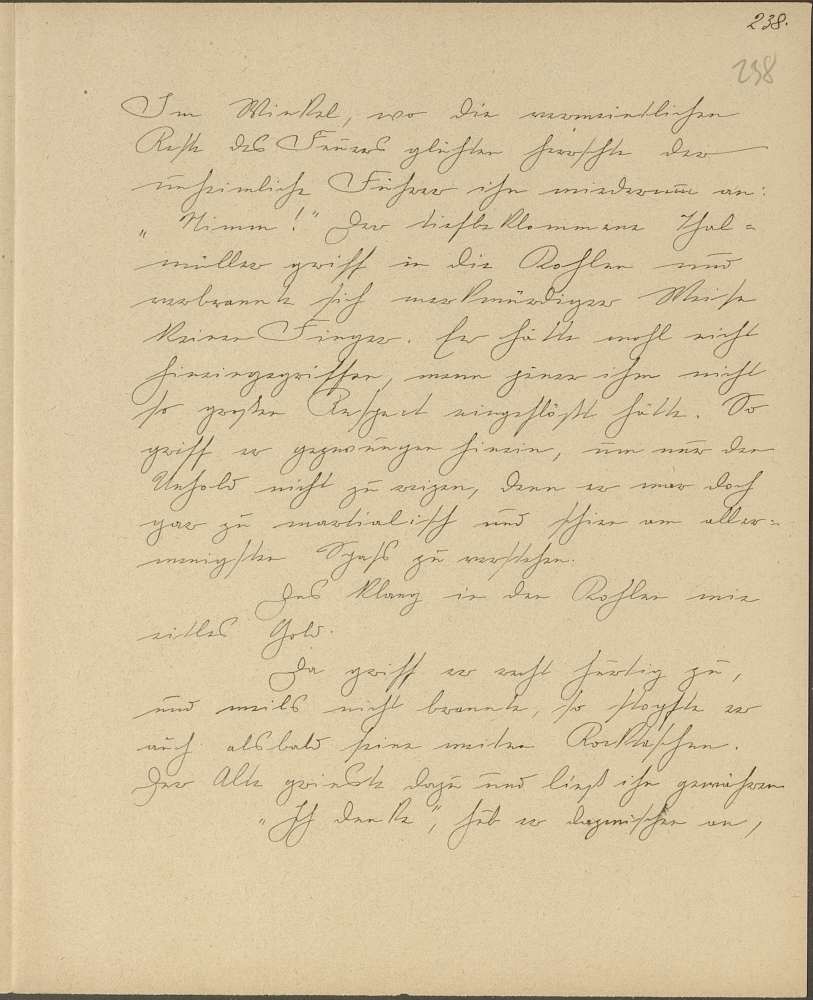 238.
238
Im Winkel, wo die vermeintlichen
Reste des Feuers glühten herrschte der
unheimliche Führer ihn wiederum an:
„Nimm!" Der tiefbeklommene Thal-
müller griff in die Kohlen und
verbrannte sich merkwürdiger Weise
keinen Finger. Er hätte wohl nicht
hineingegriffen, wenn jener ihm nicht
so großen Respect eingeflößt hätte. So
griff er gezwungen hinein, um nur den
Unhold nicht zu reizen, denn er war doch
gar zu martialisch und schien am aller-
wenigsten Spaß zu verstehen.
Das klang in den Kohlen wie
eitles Gold.
Da griff er recht hurtig zu,
und weils nicht brannte, so stopfte er
auch alsbald seine weiten Rocktaschen.
Der Alte grinste dazu und ließ ihn gewähren
„Ich denke", hub er dazwischen an,